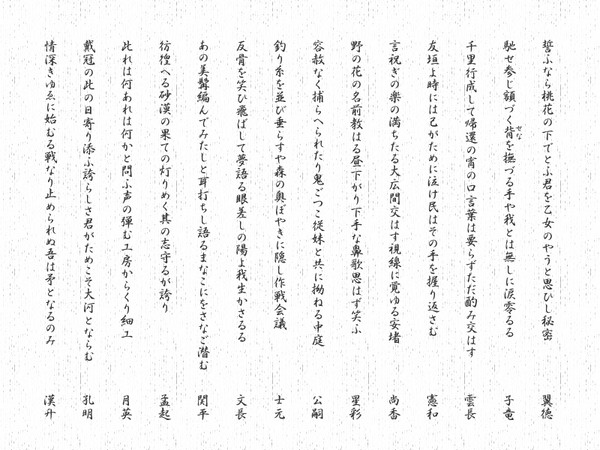 誓ふなら桃花の下でとふ君を乙女のやうと思ひし秘密 翼徳
馳せ参じ額づく背を撫づる手や我とは無しに涙零るる 子竜
せな
千里行成して帰還の宵の口言葉は要らずただ酌み交はす 雲長
友垣よ時には己がために泣け民はその手を握り返さむ 憲和
言祝ぎの楽の満ちたる大広間交はす視線に覚ゆる安堵 尚香
野の花の名前教はる昼下がり下手な鼻歌思はず笑ふ 星彩
容赦なく捕らへられたり鬼ごつこ従妹と共に拗ねる中庭 公嗣
釣り糸を並び垂らすや森の奥ぼやきに隠し作戦会議 士元
反骨を笑ひ飛ばして夢語る眼差しの陽よ我生かさるる 文長
あの美髯編んでみたしと耳打ちし語るまなこにをさなご潜む 関平
彷徨へる砂漠の果ての灯りめく其の志守るが誇り 孟起
此れは何あれは何かと問ふ声の弾む工房からくり細工 月英
戴冠の此の日寄り添ふ誇らしさ君がためこそ大河とならむ 孔明
情深きゆゑに始むる戦なり止められぬ吾は矛となるのみ 漢升